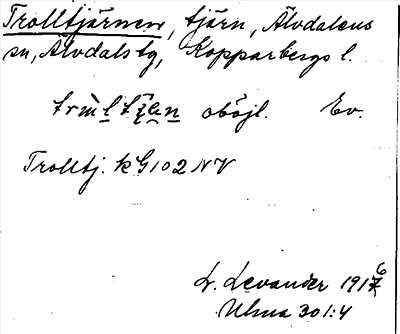 Trolltjärnen, tjärn, Älvdalens
sn, Älvdals tg, Kopparbergs l.
oböjl. Ev.
Trolltj. k G102 NV
L. Levander 1916
Ulma 301:4